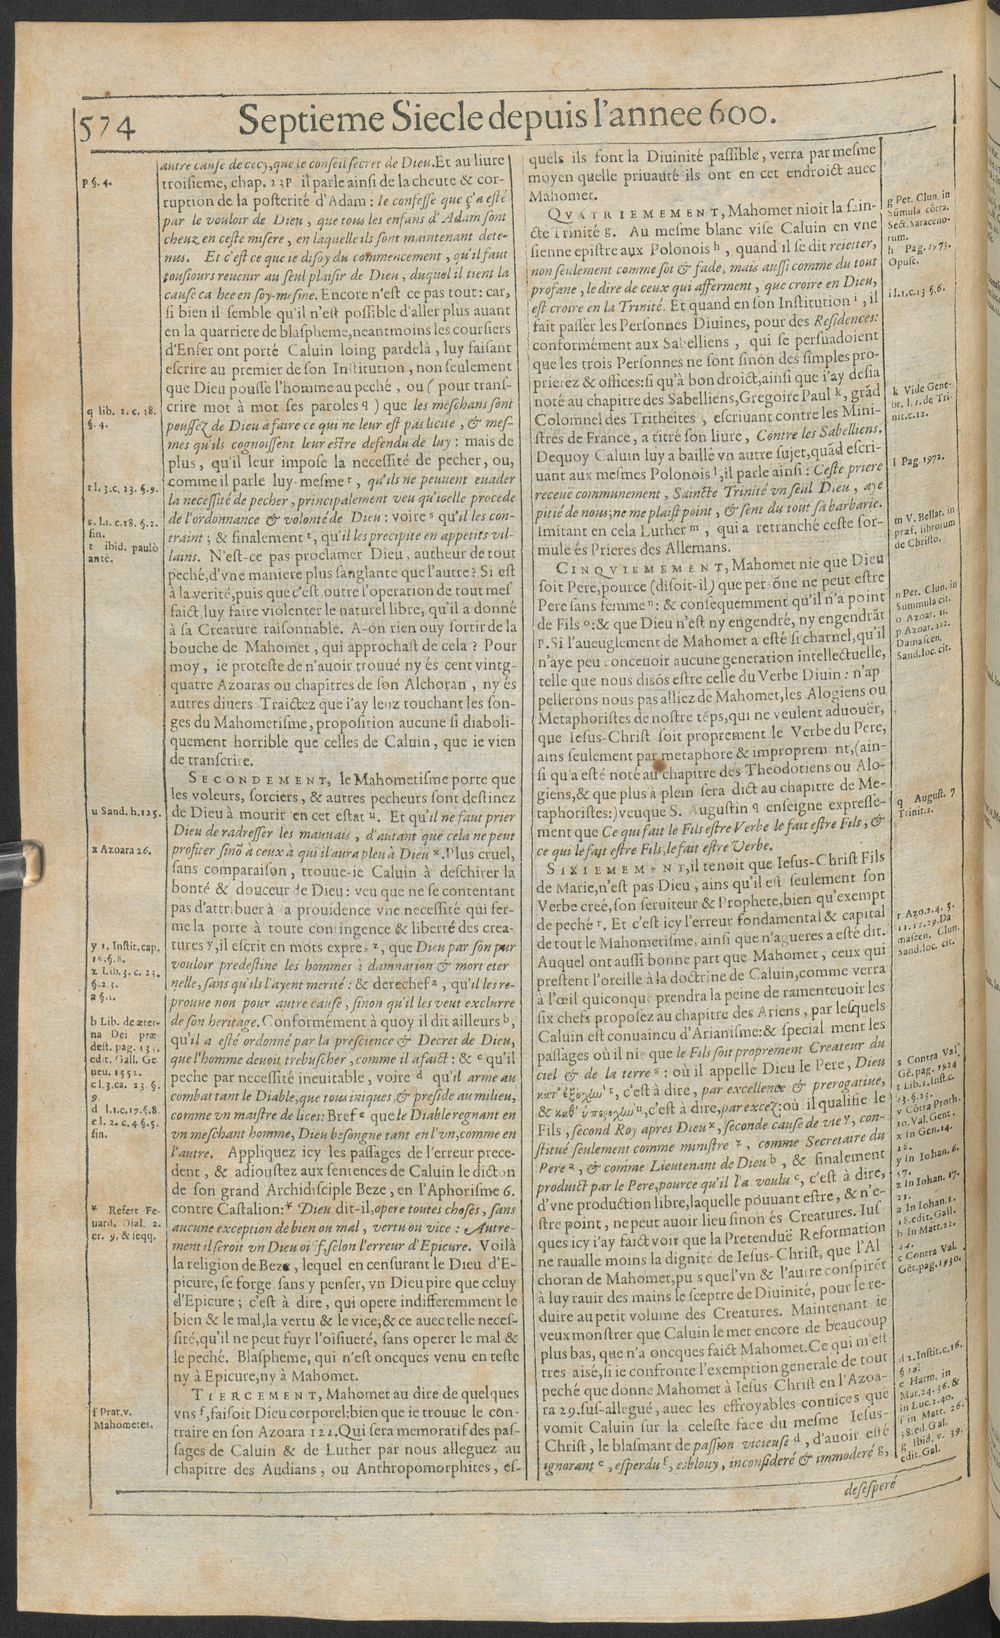 574
Septieme Siecle depuis l'annee 600.
autre cause de cecy, que le conseil secret de Dieu. Et au liure
troisiesme, chap. 23 p il parle ainsi de la cheute & cor-
ruption de la posterité d'Adam : Ie confesse que ç'a esté
par le vouloir de Dieu, que tous les enfans d'Adam sont
cheuz en ceste misere, en laquelle ils sont maintenant dete-
nus. Et c'est ce que ie disoy du commencement, qu'il faut
tousiours reuenir au seul plaisir de Dieu, duquel il tient la
cause cachee en soy-mesme. Encore n'est ce pas tout : car,
si bien il semble qu'il n'est possible d'aller plus auant
en la quarriere de blaspheme, neantmoins les coursiers
d'Enfer ont porté Caluin loing pardelà, luy faisant
escrire au premier de son Institution, non seulement
que Dieu pousse l'homme au peché, ou (pour trans-
crire mot à mot ses paroles q) que les meschans sont
poussez de Dieu à faire ce qui ne leur est pas licite, & mes-
mes qu'ils cognoissent leur estre defendu de luy : mais de
plus, qu'il leur impose la necessité de pecher, ou,
comme il parle luy-mesme r, qu'ils ne peuuent euader
la necessité de pecher, principalement veu qu'icelle procede
de l'ordonnance & volonté de Dieu : voire s qu'il les con-
traint ; & finalement t, qu'il les precipite en appetits vil-
lains. N'est-ce pas proclamer Dieu, autheur de tout
peché, d'vne maniere plus sanglante que l'autre ? Si est
à la verité, puis que c'est outre l'operation de tout mes
faict, luy faire violenter le naturel libre, qu'il a donné
à sa Creature raisonnable. A-on rien ouy sortir de la
bouche de Mahomet, qui approchast de cela ? Pour
moy, ie proteste de n'auoir trouué ny és cent vintg-
quatre Azoaras ou chapitres de son Alchoran, ny és
autres diuers Traictez que i'ay leuz touchant les son-
ges du Mahometisme, proposition aucune si diaboli-
quement horrible que celles de Caluin, que ie vien
de transcrire.
SECONDEMENT, le Mahometisme porte que
les voleurs, sorciers, & autres pecheurs sont destinez
de Dieu à mourir en cet estat u. Et qu'il ne faut prier
Dieu de radresser les mauuais, d'autant que cela ne peut
profiter sinõ à ceux à qui il aura pleu à Dieu x. Plus cruel,
sans comparaison, trouue-ie Caluin à deschirer la
bonté & douceur de Dieu : veu que ne se contentant
pas d'attribuer à sa prouidence vne necessité qui fer-
me la porte à toute contingence & liberté des crea-
tures y, il escrit en mots expres z, que Dieu par son pur
vouloir predestine les hommes à damnation & mort eter
nelle, sans qu'ils l'ayent merité : & derechef a, qu'il les re-
prouue non pour autre cause, sinon qu'il les veut exclurre
de son heritage. Conformément à quoy il dit ailleurs b,
qu'il a esté ordonné par la prescience & Decret de Dieu,
que l'homme deuoit trebuscher, comme il a faict : & c qu'il
peche par necessité ineuitable, voire d qu'il arme au
combat tant le Diable, que tous iniques, & preside au milieu,
comme vn maistre de lices : Bref e que le Diable regnant en
vn meschant homme, Dieu besongne tant en l'vn, comme en
l'autre. Appliquez icy les passages de l'erreur prece-
dent, & adioustez aux sentences de Caluin le dicton
de son grand Archidisciple Beze, en l'Aphorisme 6.
contre Castalion :* Dieu dit-il, opere toutes choses, sans
aucune exception de bien ou mal, vertu ou vice : Autre-
ment il seroit vn Dieu oisif, selon l'erreur d'Epicure. Voilà
la religion de Beze, lequel en censurant le Dieu d'E-
picure, se forge sans y penser, vn Dieu pire que celuy
d'Epicure ; c'est à dire, qui opere indifferemment le
bien & le mal, la vertu & le vice; & ce auec telle neces-
sité, qu'il ne peut fuyr l'oisiueté, sans operer le mal &
le peché. Blaspheme, qui n'est oncques venu en teste
ny à Epicure, ny à Mahomet.
TIERCEMENT, Mahomet au dire de quelques
vns f, faisoit Dieu corporel; bien que ie trouue le con-
traire en son Azoara 122. Qui sera memoratif des pas-
sages de Caluin & de Luther par nous alleguez au
chapitre des Audians, ou Anthropomorphites, es-
p §. 4.
q lib. 1. c. 18.
§. 4.
r l. 3. c. 23. §. 9.
s. l. 1. c. 18. §. 2.
fin.
t ibid. paulò
antè.
u Sand. h. 125.
x Azoara 26.
y 1. Instit. cap.
16. §. 8.
z Lib. 3. c. 23.
§. 2 3.
a §. 1.
b Lib. de æter-
na Dei præ
dest. pag.
edit. Gall. Ge
neu. 1552.
c l. 3. ca. 23 §.
9.
d l. 1. c. 17. §. 8.
e l. 2. c. 4 §. 5.
fin.
* Refert Fe-
uard. Dial. 2.
er. 9. & seqq.
f Prat. v.
Mahometes.
quels ils font la Diuinité passible, verra par mesme
moyen quelle priuauté ils ont en cet endroict auec
Mahomet.
QVATRIEMEMENT, Mahomet nioit la sain-
cte Trinité g. Au mesme blanc vise Caluin en vne
sienne epistre aux Polonois h, quand il se dit reietter,
non seulement comme sot & fade, mais aussi comme du tout
profane, le dire de ceux qui afferment, que croire en Dieu,
est croire en la Trinité. Et quand en son Institution i, il
fait passer les Personnes Diuines, pour des Residences :
conformément aux Sabelliens, qui se persuadoient
que les trois Personnes ne sont sinon des simples pro-
prietez & offices : si qu'à bon droict, ainsi que i'ay desia
noté au chapitre des Sabelliens, Gregoire Paul k, grãd
Colomnel des Tritheites, escriuant contre les Mini-
stres de France, a titré son liure, Contre les Sabelliens.
Dequoy Caluin luy a baillé vn autre sujet, quãd escri-
uant aux mesmes Polonois l, il parle ainsi : Ceste priere
receue communement, Saincte Trinité vn seul Dieu, aye
pitié de nous; ne me plaist point, & sent du tout sa barbarie.
Imitant en cela Luther m, qui a retranché ceste for-
mule és Prieres des Allemans.
CINQVIEMEMENT, Mahomet nie que Dieu
soit Pere, pource (disoit-il) que personne ne peut estre
Pere sans femme n : & consequemment qu'il n'a point
de Fils o : & que Dieu n'est ny engendré, ny engendrãt
p. Si l'aueuglement de Mahomet a esté si charnel, qu'il
n'aye peu conceuoir aucune generation intellectuelle,
telle que nous disõs estre celle du Verbe Diuin : n'ap
pellerons nous pas alliez de Mahomet, les Alogiens ou
Metaphoristes de nostre tẽps, qui ne veulent aduouër,
que Iesus-Christ soit proprement le Verbe du Pere,
ains seulement par metaphore & improprement, (ain-
si qu'a esté noté au chapitre des Theodotiens ou Alo-
giens, & que plus à plein sera dict au chapitre de Me-
taphoristes :) veu que S. Augustin q enseigne expressé-
ment que Ce qui fait le Fils estre Verbe le fait estre Fils, &
ce qui le fait estre Fils, le fait estre Verbe.
SIXIEMEMENT, il tenoit que Iesus-Christ Fils
de Marie, n'est pas Dieu, ains qu'il est seulement son
Verbe creé, son seruiteur & Prophete, bien qu'exempt
de peché r. Et c'est icy l'erreur fondamental & capital
de tout le Mahometisme, ainsi que n'agueres a esté dit.
Auquel ont aussi bonne part que Mahomet, ceux qui
prestent l'oreille à la doctrine de Caluin, comme verra
à l'œil quiconque prendra la peine de ramenteuoir les
six chefs proposez au chapitre des Ariens, par lesquels
Caluin est conuaincu d'Arianisme : & specialement les
passages où il nie que le Fils soit proprement Createur du
ciel & de la terre s : où il appelle Dieu le Pere, Dieu
κατ' ἐξοχὴν t, c'est à dire, par excellence & prerogatiue,
& καθ' ὑπεροχὴν u, c'est à dire, par excez : où il qualifie le
Fils, second Roy apres Dieu x, seconde cause de vie y, con-
stitué seulement comme ministre z, comme Secretaire du
Pere a, & comme Lieutenant de Dieu b, & finalement
produict par le Pere, pource qu'il l'a voulu c, c'est à dire,
d'vne production libre, laquelle pouuant estre, & n'e-
stre point, ne peut auoir lieu sinon és Creatures. Ius
ques icy i'ay faict voir que la Pretenduë Reformation
ne raualle moins la dignité de Iesus-Christ, que l'Al
choran de Mahomet, puisque l'vn & l'autre conspirẽt
à luy rauir des mains le sceptre de Diuinité, pour le re-
duire au petit volume des Creatures. Maintenant ie
veux monstrer que Caluin le met encore de beaucoup
plus bas, que n'a oncques faict Mahomet. Ce qui m'est
tres aisé, si ie confronte l'exemption generale de tout
peché que donne Mahomet à Iesus Christ en l'Azoa-
ra 29. sus-allegué, auec les effroyables conuices que
vomit Caluin sur la celeste face du mesme Iesus-
Christ, le blasmant de passion vicieuse d, d'auoir esté
ignorant e, esperdu f, esblouy, inconsideré & immoderé g,
desesperé
g Pet. Clun. in
Sũmula cõtra.
Sect. Saraceno-
rum.
h Pag. 1973.
Opusc.
i l. 1. c. 13 §. 6.
k Vide Gene-
br. l. 1. de Tri-
nit. c. 12.
l Pag. 1972.
m V. Bellar. in
præf. librorum
de Christo.
n Pet. Clun. in
Summula cit.
o Azoar. 11.
p Azoar. 122.
Damascen.
Sand. loc. cit.
q August. 7
Trinit. 2.
r Azo. 2. 4. 5.
11. 12. 29. Da
mascen. Clun.
Sand. loc. cit.
s Contra Val
Gẽ. pag. 1924
t Lib. 1. Inst. c.
13. §. 23.
v Cõtra Proth.
10. Val. Gent.
x in Gen. 14.
18.
y In Iohan. 6.
57.
z In Iohan. 17.
21.
a In Iohan. 1.
18. edit. Gall.
b In Matt. 22.
44.
c Contra Val.
Gẽt. pag. 1930.
d 2. Instit. c. 16.
§ 12.
e Harm. in
Mat. 24. 36. &
in Luc. 2. 40.
f in Matt. 26.
38. ed. Gal.
g Ibid. v. 39.
edit. Gal.